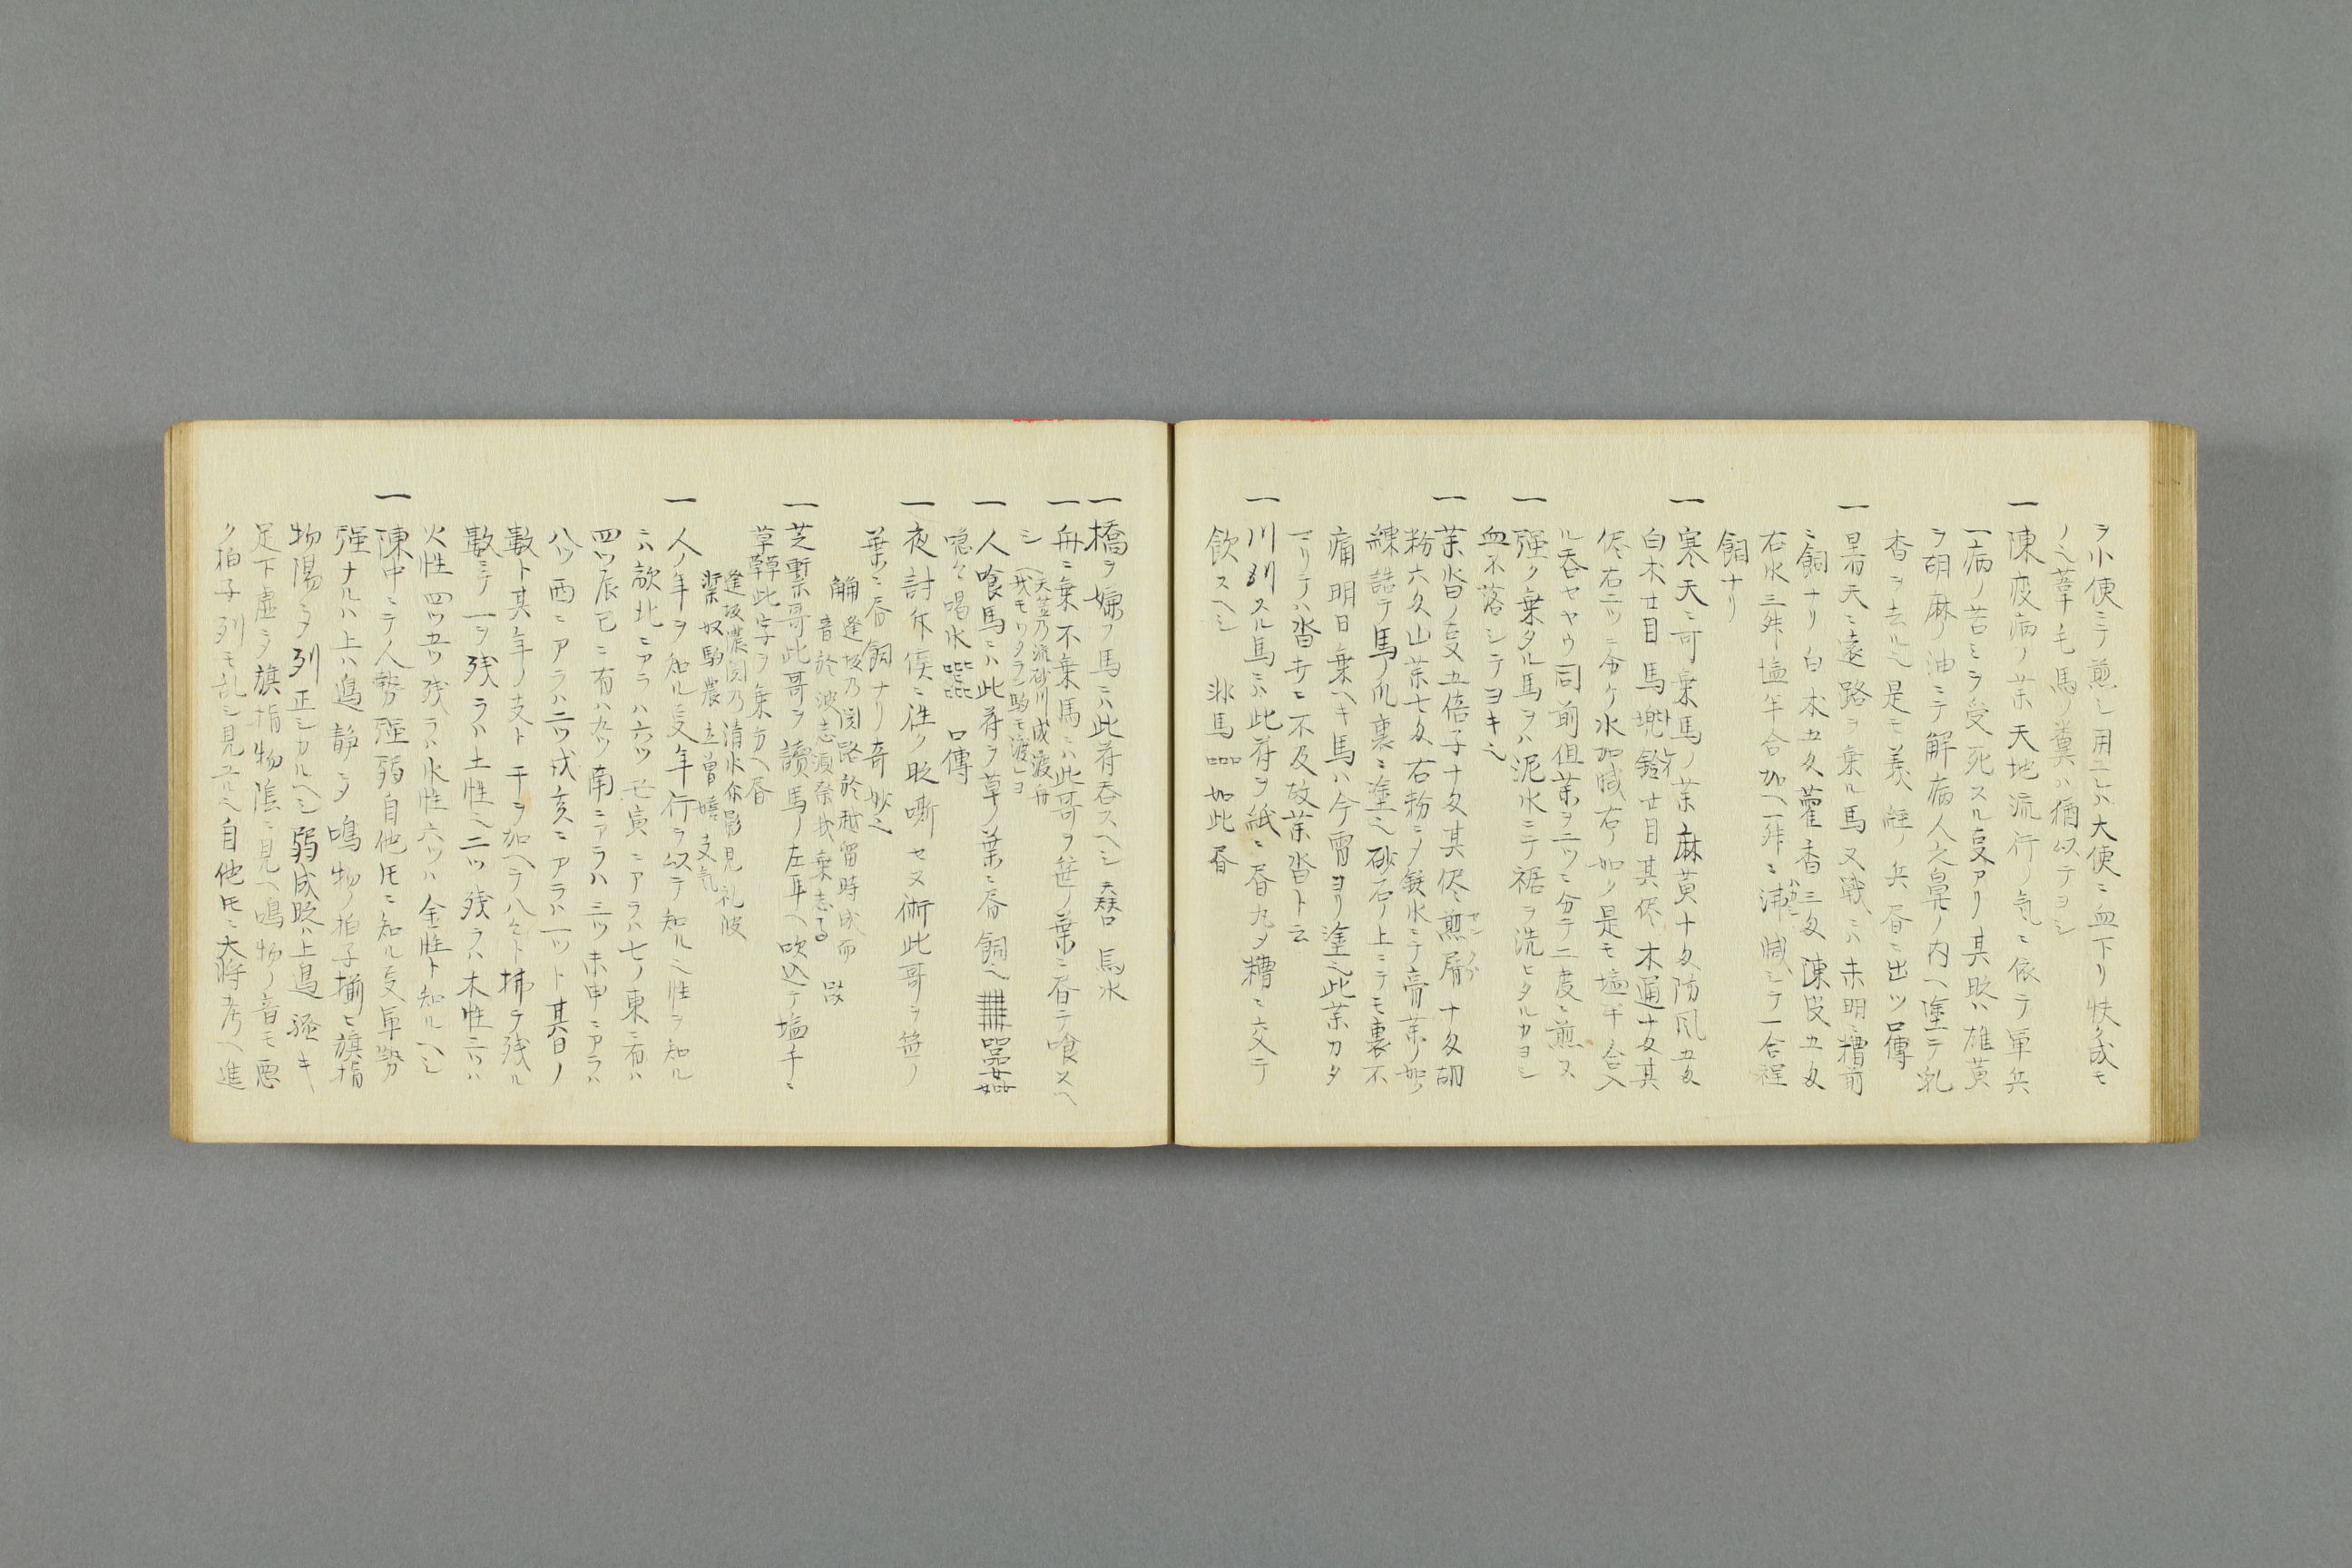 ヲ小便ニテ煎シ用ユレハ大便ニ血下リ快ク成モ
ノ也葦毛馬ノ糞ハ猶以テヨシ
一 陳疫病ノ薬天地流行ノ気ニ依テ軍兵
一病ノ苦ミヲ受死スル叓アリ其時ハ雄黄
ヲ胡麻ノ油ニテ解病人穴鼻ノ内ヘ塗テ乳
香ヲ去ル也是モ義経ノ兵書ニ出ツ口傳
一 暑天ニ遠路ヲ乗ル馬又戦ニハ未明ニ糟前
ニ飼ナリ白朮五匁藿香三匁陳皮五匁
右水三舛塩半合加ヘ一舛ニ沸減シテ一合程
飼ナリ
一 寒天ニ可乗馬ノ薬麻黄十匁防風五匁
白朮廿目馬兜鈴廿目其侭木通十匁其
侭右二ツニ分ケ水加减右ノ如ク是モ塩半合入
ル呑セヤウ同前但薬ヲ二ツニ分テ二度ニ煎ス
一 强ク乗タル馬ヲハ泥水ニテ裾ヲ洗ヒタルカヨシ
血不落シテヨキ也
一 薬沓ノ叓五倍子十匁其侭煎屑十匁胡
粉六匁山薬七匁右粉ニシ銕水ニテ膏薬ノ如ク
練詰テ馬ノ爪裏ニ塗也砂石ノ上ニテモ裏不
痛明日乗ヘキ馬ハ今宵ヨリ塗也此薬カタ
マリテハ沓廿ニ不及故薬沓ト云
一 川別スル馬ニハ此符ヲ紙ニ書丸メ糟ニ交テ
飲スヘシ 非馬 如此書
一 橋ヲ嫌フ馬ニハ此符呑スヘシ 馬水
一 舟ニ乗不乗馬ニハ此哥ヲ笹ノ葉ニ書テ喰スヘ
シ 天竺乃流砂川成渡舟
我モワタラン駒モ渡レヨ
一 人喰馬ニハ此符ヲ草ノ葉ニ書飼也
喼々喝水 口傳
一 夜討斥候ニ往ク時嘶セヌ術此哥ヲ笹ノ
葉ニ書飼ナリ奇妙也
逢坂乃関路於越留時成而
音於波志須奈我乗志る
一 芝繋哥此哥ヲ讀馬ノ左耳ヘ吹込テ塩手ニ
草 此字ヲ乗方ヘ書
逢坂農関乃清水尓影見礼波
繋奴駒農立曽嬉支気
一 人ノ年ヲ知ル叓年行ヲ以テ知ル也性ヲ知ル
ニハ 北ニアラハ六ツ 寅ニアラハ七ノ東ニ有ハ
四ツ辰巳ニ有ハ九ツ南ニアラハ三ツ未申ニアラハ
八ツ酉ニアラハ二ツ戌亥ニアラハ一ツト其日ノ
數ト其年ノ支ト干ヲ加ヘテ八々ト拂テ残ル
數ニテ一ヲ残ラハ土性也二ツ残ラハ木性三ツハ
火性四ツ五ツ残ラハ水性六ツハ金性ト知ルヘシ
一 陳中ニテ人勢强弱自他圧ニ知ル叓軍勢
强ナルハ上ハ烏静シ夕鳴物ノ拍子揃ヒ旗指
物陽シ夕列正シカルヘシ弱成時ハ上烏騒キ
足下虚ヲ旗指物陰ニ見ヘ鳴物ノ音モ悪
ク拍子列モ乱シ見ユル也自他圧ニ大将考ヘ進